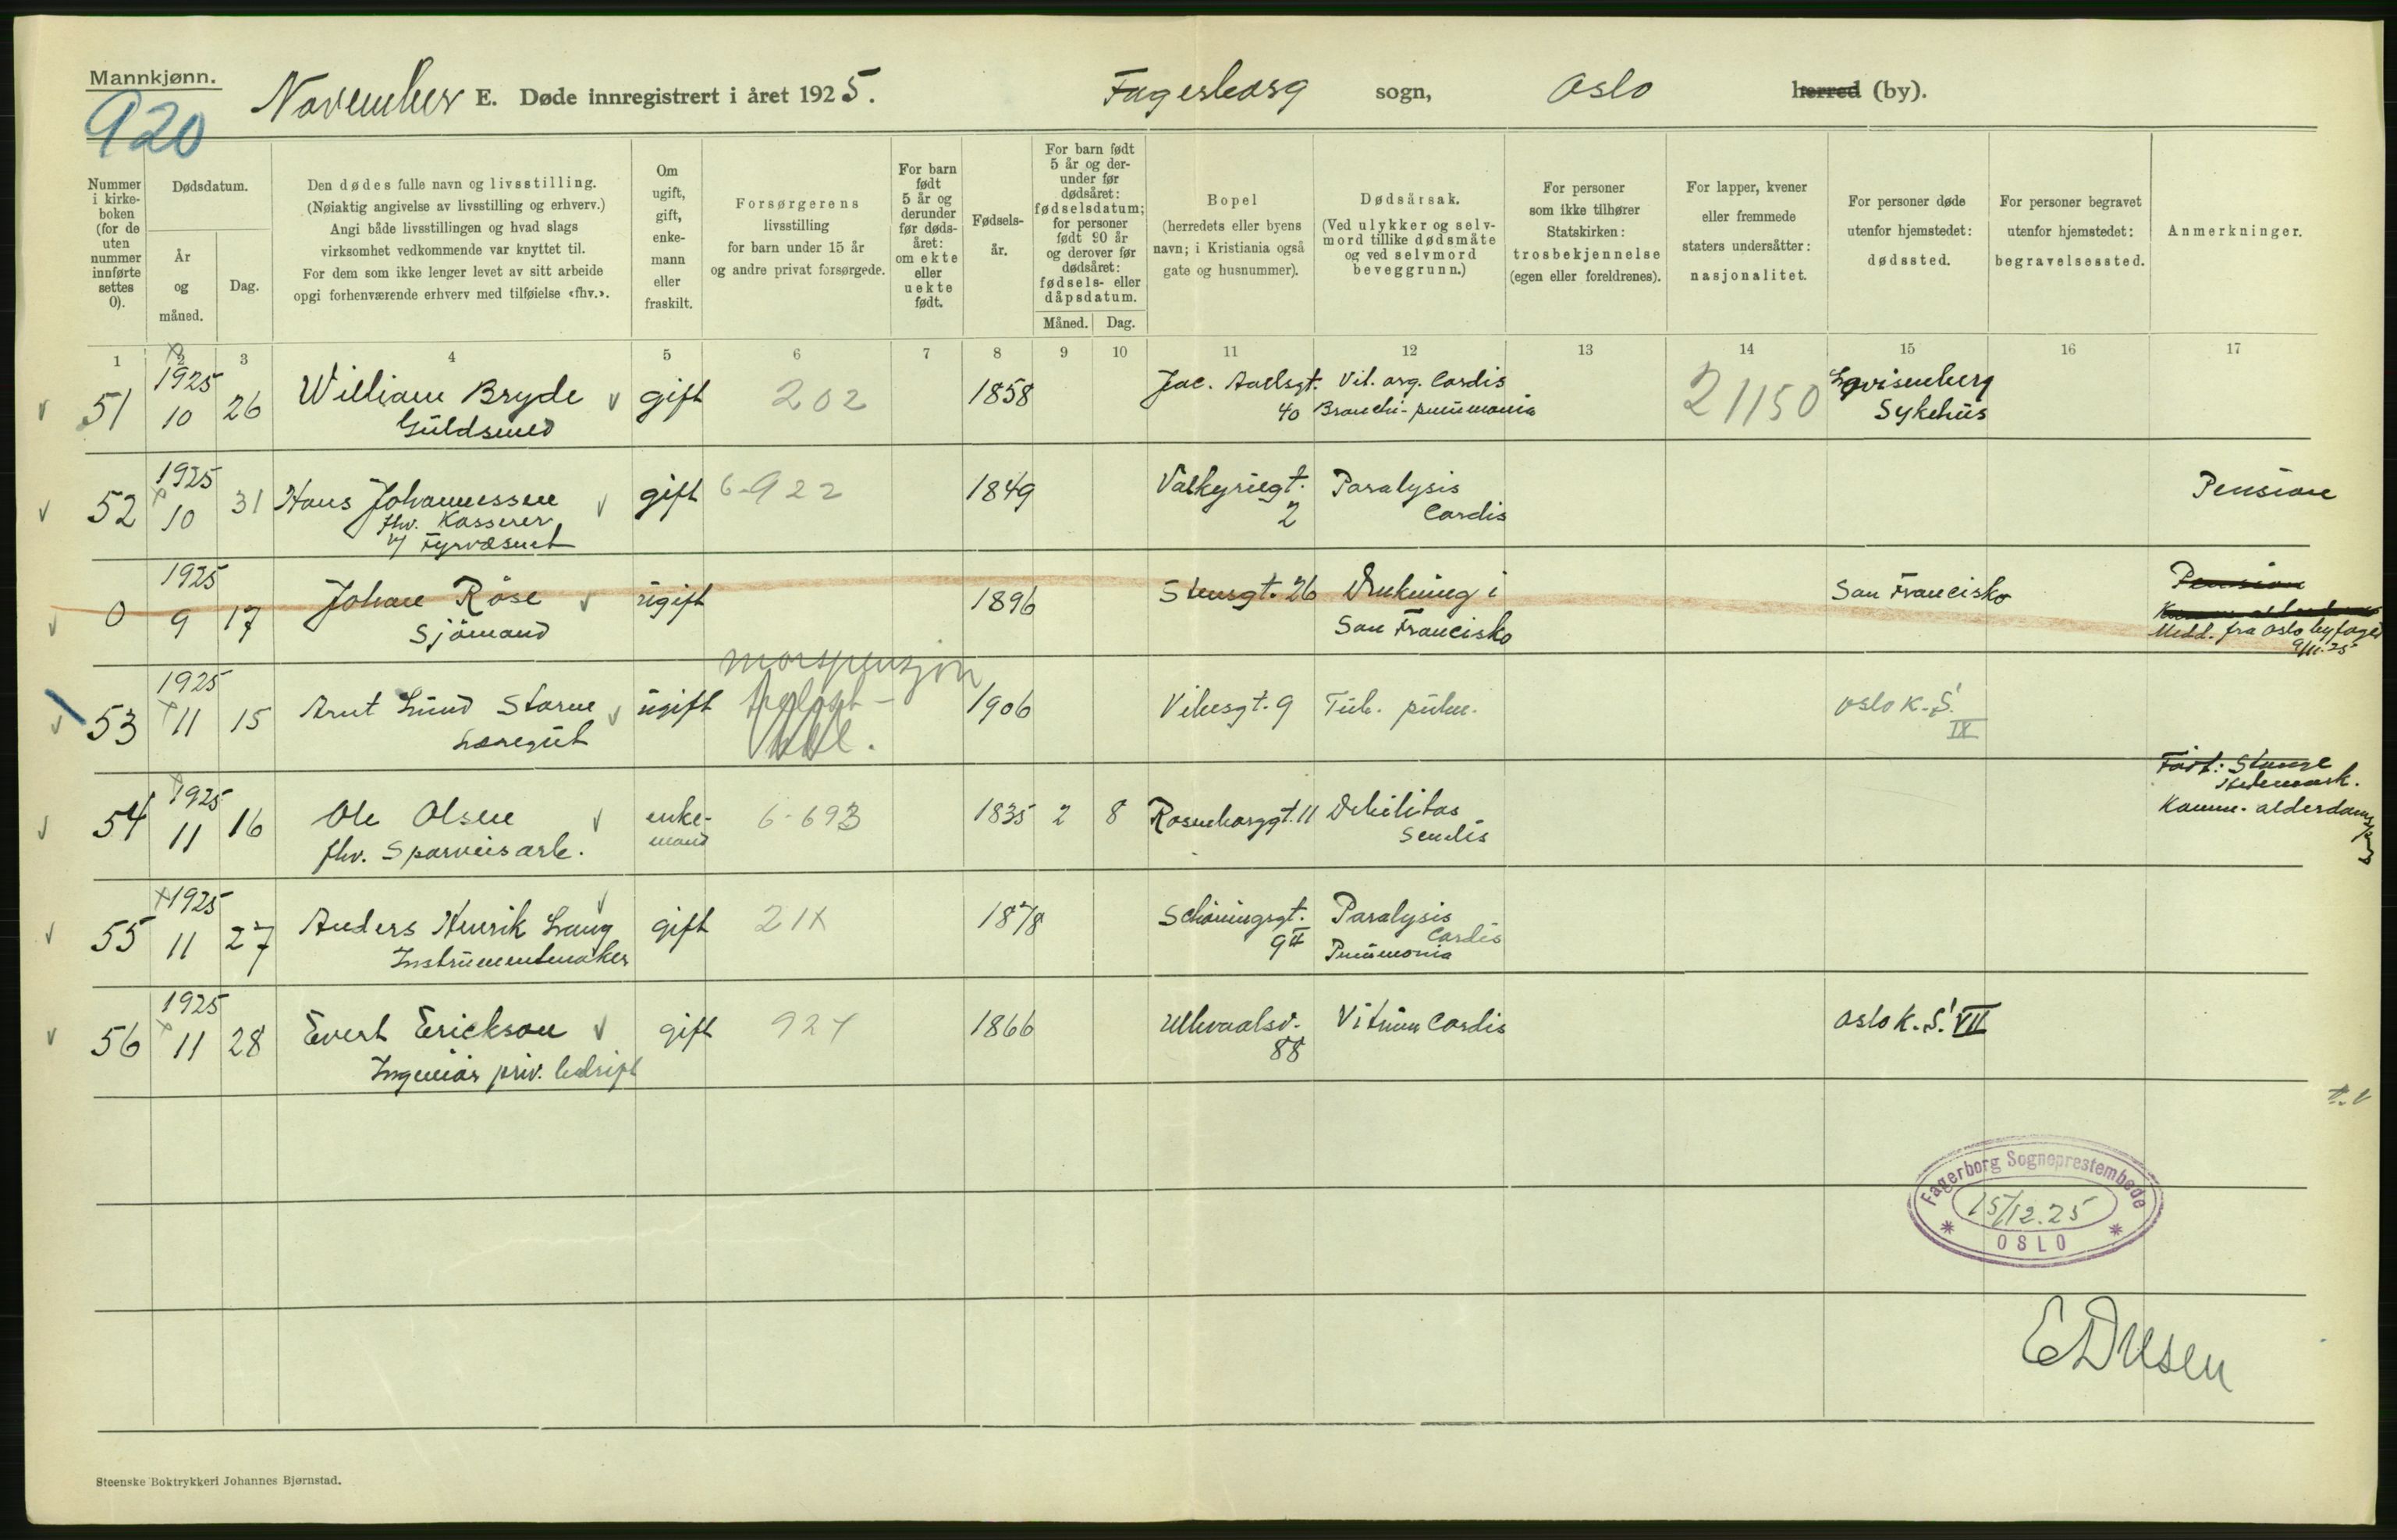 Mannkjønn.
920
November E. Døde innregistrert i året 1925. Fagerborg sogn, Oslo herred (by).
Nummer i kirkeboken (for de uten nummer innførte settes 0).
Dødsdatum.
År og måned.
Dag.
Den dødes fulle navn og livsstilling.
(Nøiaktig angivelse av livsstilling og erhverv.)
Angi både livsstillingen og hvad slags
virksomhet vedkommende var knyttet til.
For dem som ikke lenger levet av sitt arbeide
opgi forhenværende erhverv med tilføielse «fhv.».
Om ugift, gift, enkemann eller fraskilt.
Forsørgerens
livsstilling
for barn under 15 år
og andre privat forsørgede.
For barn født 5 år og derunder før dødsåret: om ekte eller uekte født.
Fødselsår.
For barn født 5 år og derunder før dødsåret: fødselsdatum; for personer født 90 år og derover før dødsåret: fødsels- eller dåpsdatum.
Måned. Dag.
Bopel
(herredets eller byens
navn; i Kristiania også
gate og husnummer).
Dødsårsak.
(Ved ulykker og selvmord tillike dødsmåte
og ved selvmord
beveggrunn.)
For personer
som ikke tilhører
Statskirken:
trosbekjennelse
(egen eller foreldrenes).
For lapper, kvener
eller fremmede
staters undersåtter:
nasjonalitet.
For personer døde
utenfor hjemstedet:
dødssted.
For personer begravet
utenfor hjemstedet:
begravelsessted.
Anmerkninger.
1 2 3 4 5 6 7 8 9 10 11 12 13 14 15 16 17
51 1925 10 26 William Bryde gift 202 1858 Jac. Aallsgt. 40 Vit. org. Cordis 21150 Lovisenberg
Guldsmed Bronchi-pneumonia Sykehus
52 1925 10 31 Hans Johannessen gift 6-922 1849 Valkyriegt. 2 Paralysis Cordis Pension
fhv. Kasserer
v/ Fyrvæsnet
0 1925 9 17 Johan Röse ugift 1896 Stensgt. 26 Drukning i San Francisko San Francisko Pension
Sjömand Medd. fra Oslo byfoged
9/11.25
53 1925 11 15 Arnt Lund Storm ugift morspensjon 1906 Vibesgt. 9 Tub. pulm. Oslo K. S. IX
Læregut
54 1925 11 16 Ole Olsen enkemand 6-693 1835 2 8 Rosenborggt. 11 Debilitas Senilis Født: Stange Hedemark.
fhv. Sporveisarb. Komm. alderdoms
55 1925 11 27 Anders Henrik Lang gift 21X 1878 Schöningsgt. 9 II Paralysis Cordis
Instrumentmaker Pneumonia
56 1925 11 28 Evert Erickson gift 924 1866 Ullevaalsv. 88 Vitium Cordis Oslo K. S. VII
Ingeniör priv. bedrift
Fagerborg Sogneprestembede
15/12.25
OSLO
Steenske Boktrykkeri Johannes Bjørnstad.